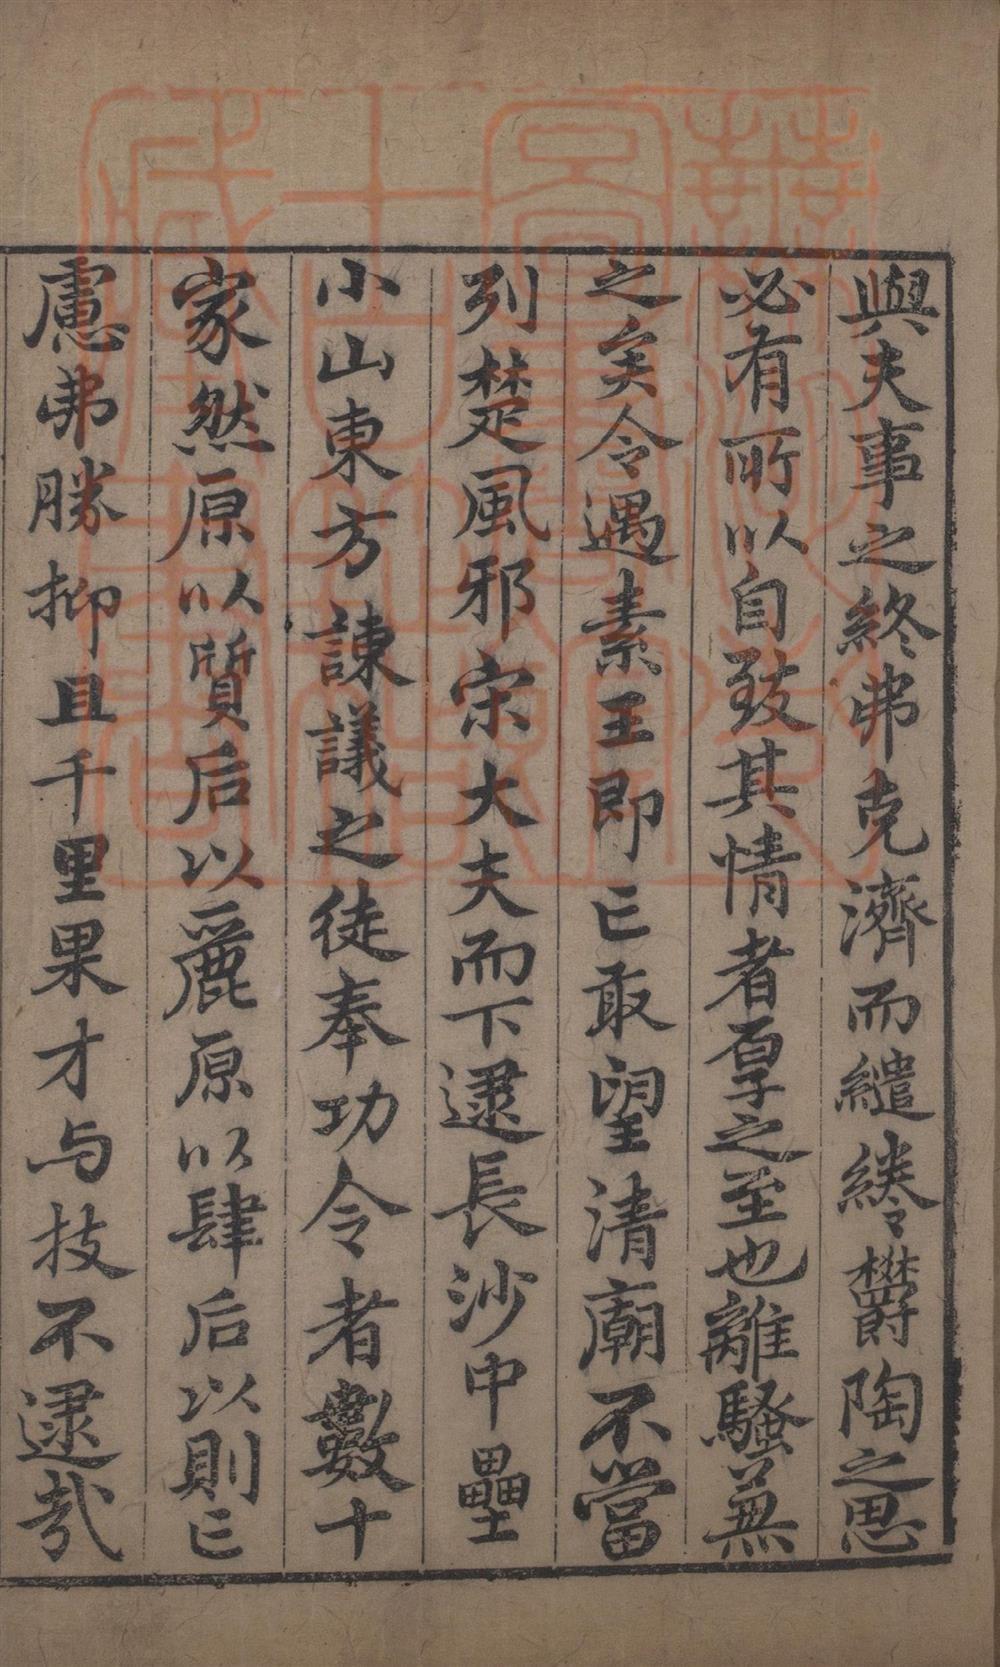 與夫事之終弗克濟而繾綣欝陶之思
必有所以自致其情者厚之至也離騷兼
之矣令遇素王即已㝡望清廟不當
列楚風邪宋大夫而下逮長沙中壘
小山東方諫議之徒奉功令者數十
家然原以質后以麗原以肆后以則已
慮弗勝抑且千里果才与技不逮㢤